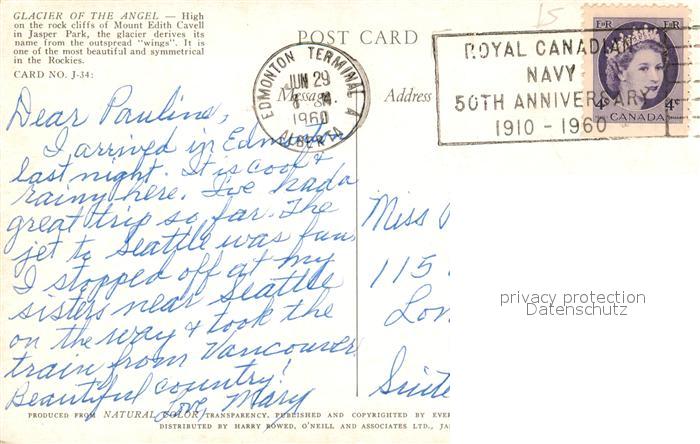 GLACIER OF THE ANGEL — High
on the rock cliffs of Mount Edith Cavell
in Jasper Park, the glacier derives its
name from the outspread "wings". It is
one of the most beautiful and symmetrical
in the Rockies.
CARD NO. J-34:
POST CARD
Message
Address
EDMONTON TERMINAL A
JUN 29
1960
ALBERTA
15
ROYAL CANADIAN
NAVY
50TH ANNIVERSARY
1910 - 1960
EIIR EIIR
4¢ 4¢
CANADA
Dear Pauline,
I arrived in Edmonton
last night. It is cool &
rainy here. I've had a
great trip so far. The
jet to Seattle was fun.
I stopped off at my
sisters near Seattle
on the way & took the
train from Vancouver.
Beautiful country!
Love, Mary
Miss
115
Lon
Suite
privacy protection
Datenschutz
PRODUCED FROM NATURAL COLOR TRANSPARENCY, PUBLISHED AND COPYRIGHTED BY EVE
DISTRIBUTED BY HARRY ROWED, O'NEILL AND ASSOCIATES LTD., JA